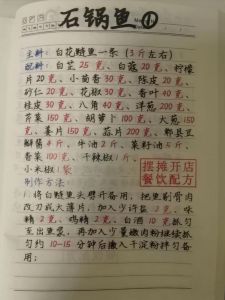 石锅鱼 ①
主料:白花鲢鱼一条(3斤左右)
配料:白芷25克、白蔻20克、柠檬
片20克、小茴香30克、陈皮20克、
砂仁20克、花椒30克、香叶40克、
桂皮30克、八角40克、洋葱200克、
芹菜150克、胡萝卜100克、大葱150
克、姜片150克、蒜片200克、郫县豆
瓣酱4斤、牛油2斤、菜籽油5斤、
香菜100克、干辣椒1斤、
小米椒1袋
摆摊开店
餐饮配方
制作方法:
1.将白鲢鱼头劈开备用,把鱼剔骨肉
改刀成大薄片,加入少许盐2克、味
精2克、鸡精2克、白酒10克抓匀
至出鱼浆,再加入少量嫩肉粉继续抓
匀约10-15分钟后撒入干淀粉拌匀备
用;